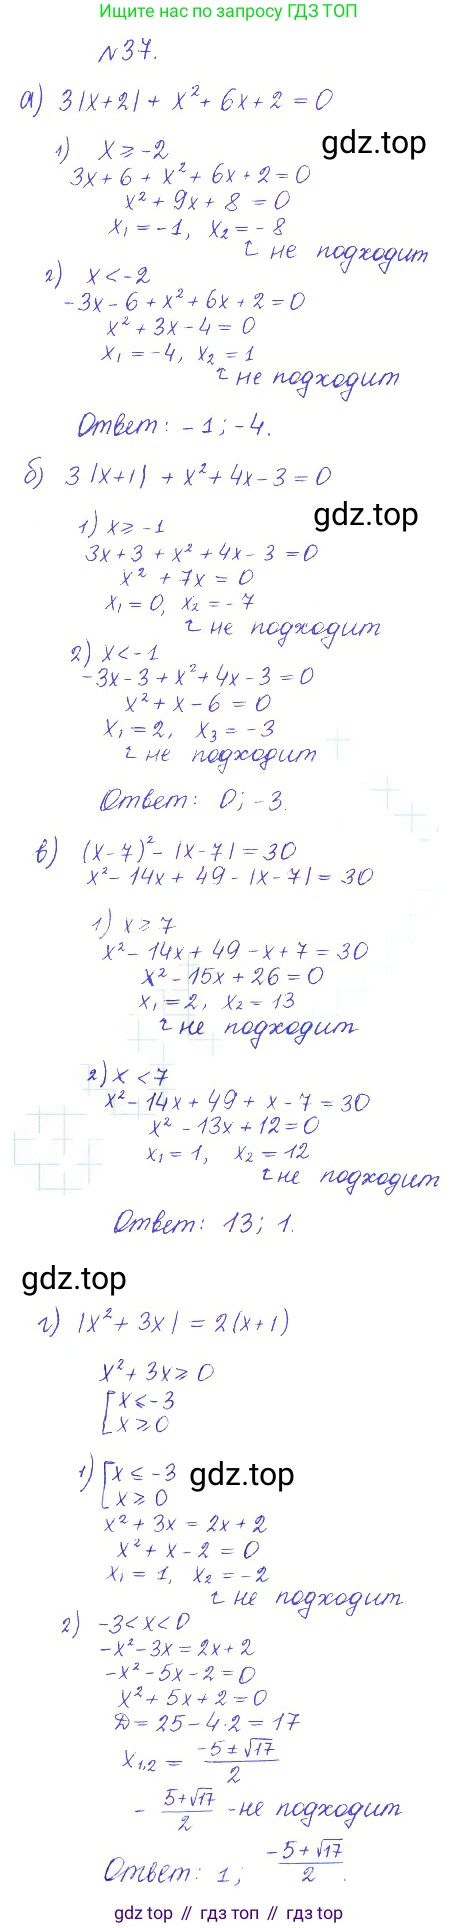 Ищите ответы по запросу ГДЗ ТОП
№37.
а) 3|x+2| + x² + 6x + 2 = 0
gdz.top
1) x ≥ -2
3x + 6 + x² + 6x + 2 = 0
x² + 9x + 8 = 0
x₁ = -1, x₂ = -8
не подходит
2) x < -2
-3x - 6 + x² + 6x + 2 = 0
x² + 3x - 4 = 0
x₁ = -4, x₂ = 1
не подходит
Ответ: -1; -4.
б) 3|x+1| + x² + 4x - 3 = 0
gdz.top
1) x ≥ -1
3x + 3 + x² + 4x - 3 = 0
x² + 7x = 0
x₁ = 0, x₂ = -7
не подходит
2) x < -1
-3x - 3 + x² + 4x - 3 = 0
x² + x - 6 = 0
x₁ = 2, x₃ = -3
не подходит
Ответ: 0; -3.
в) (x-7)² - |x-7| = 30
x² - 14x + 49 - |x-7| = 30
1) x ≥ 7
x² - 14x + 49 - x + 7 = 30
x² - 15x + 26 = 0
x₁ = 2, x₂ = 13
не подходит
2) x < 7
x² - 14x + 49 + x - 7 = 30
x² - 13x + 12 = 0
x₁ = 1, x₂ = 12
не подходит
Ответ: 13; 1.
gdz.top
г) |x² + 3x| = 2(x+1)
x² + 3x ≥ 0
[x ≤ -3
x ≥ 0
1) [x ≤ -3
x ≥ 0
gdz.top
x² + 3x = 2x + 2
x² + x - 2 = 0
x₁ = 1, x₂ = -2
не подходит
2) -3 < x < 0
-x² - 3x = 2x + 2
-x² - 5x - 2 = 0
x² + 5x + 2 = 0
D = 25 - 4·2 = 17
x₁,₂ = (-5 ± √17)/2
- (5+√17)/2 - не подходит
Ответ: 1; (-5+√17)/2.
gdz.top // гдз.топ // гдз топ